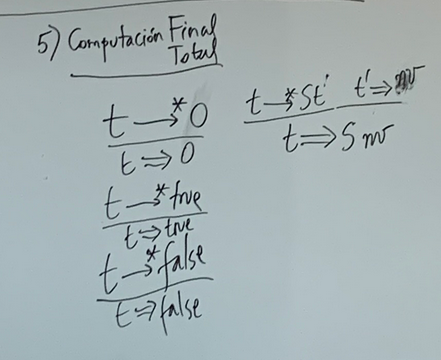 5) Computación Final
Total
t →* 0
t ⇒ 0
t →* true
t ⇒ true
t →* false
t ⇒ false
t →* St' t' ⇒ nv
t ⇒ S nv